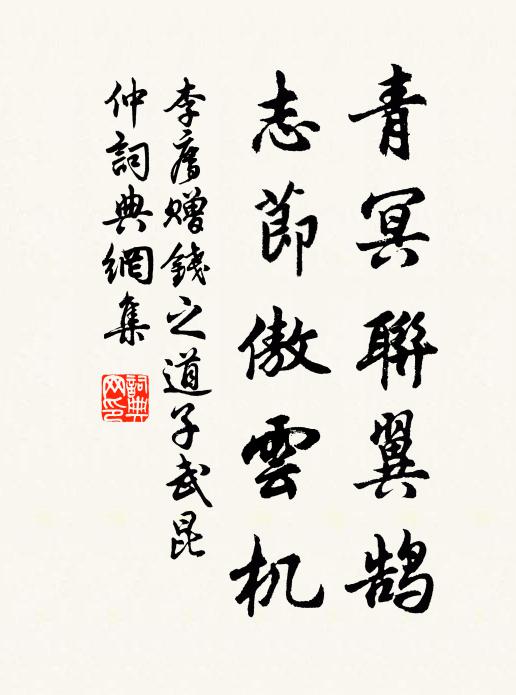 青冥聯翼鵠
志節傲雲机
李廌贈錢之道子武昆
仲詞典網集
詞典
网印